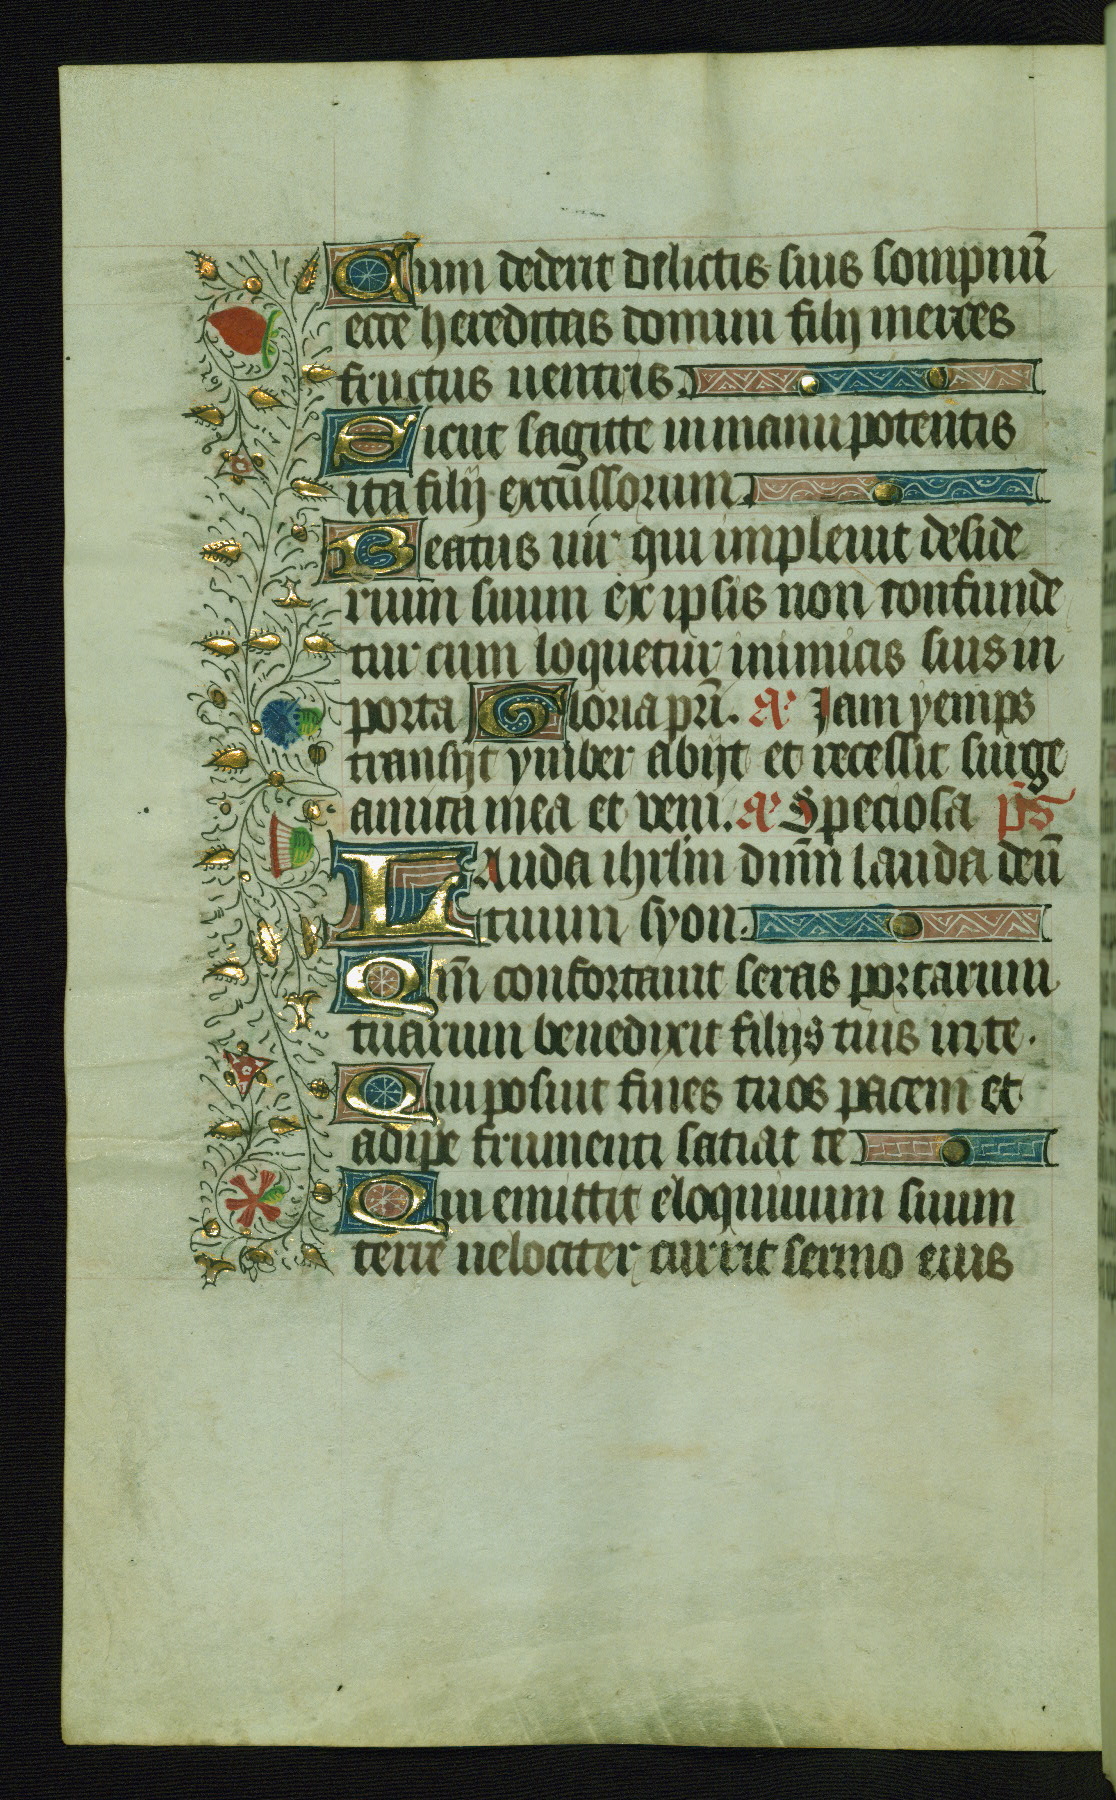 Cum dederit dilictis suis sompnū
ecce hereditas domini filij merces
fructus uentris.
Sicut sagitte in manu potentis
ita filij excussorum.
Beatus uir qui impleuit deside
rium suum ex ipsis non confunde
tur cum loquetur inimicis suis in
porta Gloria pr̄i. a᷑ Jam yemps
transijt ymber abijt et recessit surge
amica mea et veni. a᷑ Speciosa p̄s
Lauda ihrl̄m dn̄m lauda deū
tuum syon.
Qm̄ confortauit seras portarum
tuarum benedixit filijs tuis in te.
Qui posuit fines tuos pacem et
adipe frumenti satiat te
Qui emittit eloquiuum suum
terre uelociter currit sermo eius